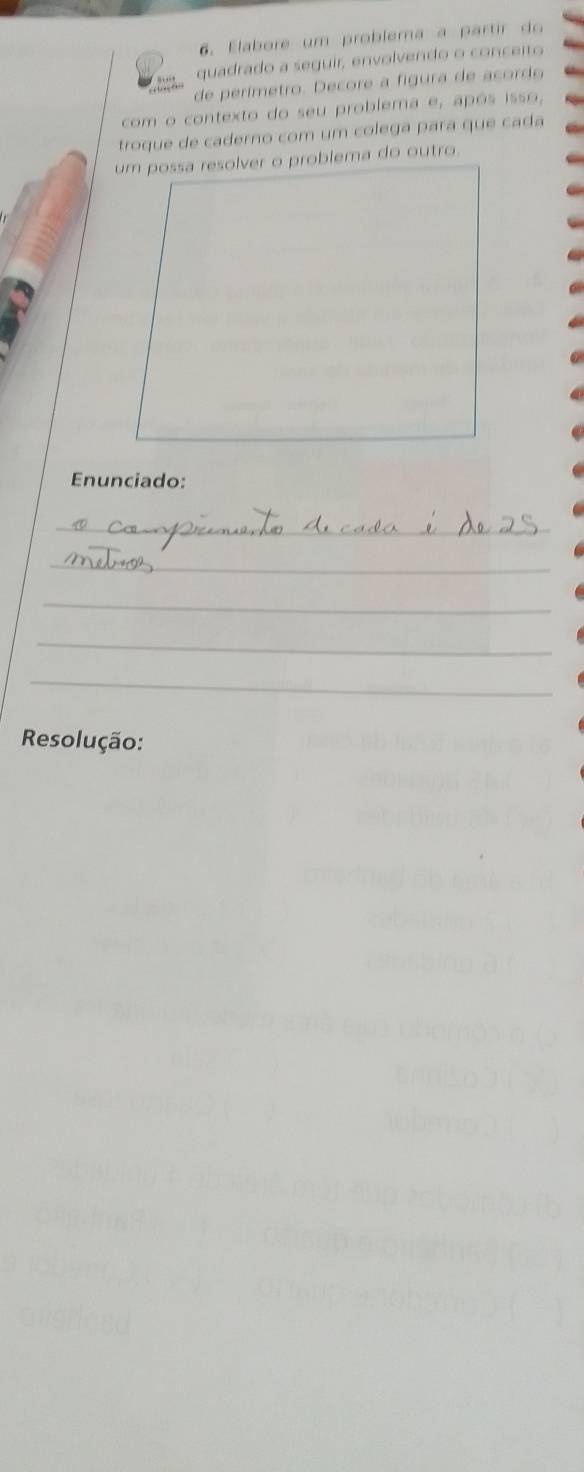 6. Elabore um problema a partir do
quadrado a seguir, envolvendo o conceito
de perímetro. Decore a figura de acordo
com o contexto do seu problema e, após isso,
troque de caderno com um colega para que cada
um possa resolver o problema do outro.
Enunciado:
o comprimento de cada é de 25
metros
Resolução: